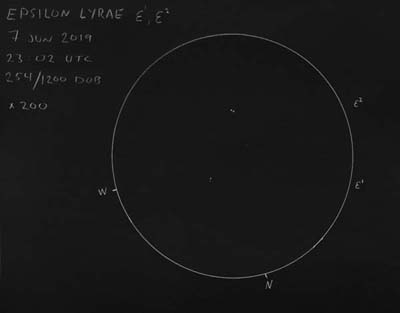 EPSILON LYRAE ε¹, ε²
7 JUN 2019
23:02 UTC
254/1200 DOB
x200
ε²
ε¹
W
N